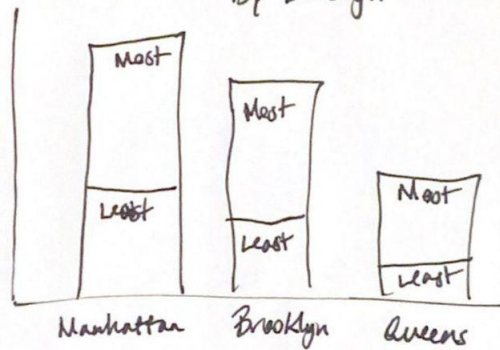 Most
Most
Least
Most
Least
Least
Manhattan Brooklyn Queens